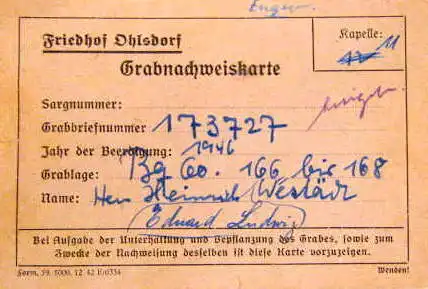 Friedhof Ohlsdorf
Kapelle:
11
Grabnachweiskarte
Sargnummer:
Grabbriefnummer 173727
Jahr der Beerdigung: 1946
Grablage: Bg 60. 166 bis 168
Name: Herr Heinrich
Eduard Ludwig
Bei Aufgabe der Unterhaltung und Bepflanzung des Grabes, sowie zum
Zwecke der Nachweisung desselben ist diese Karte vorzuzeigen.
Form. 59. 5000. 12. 42 E/0334
Wenden!